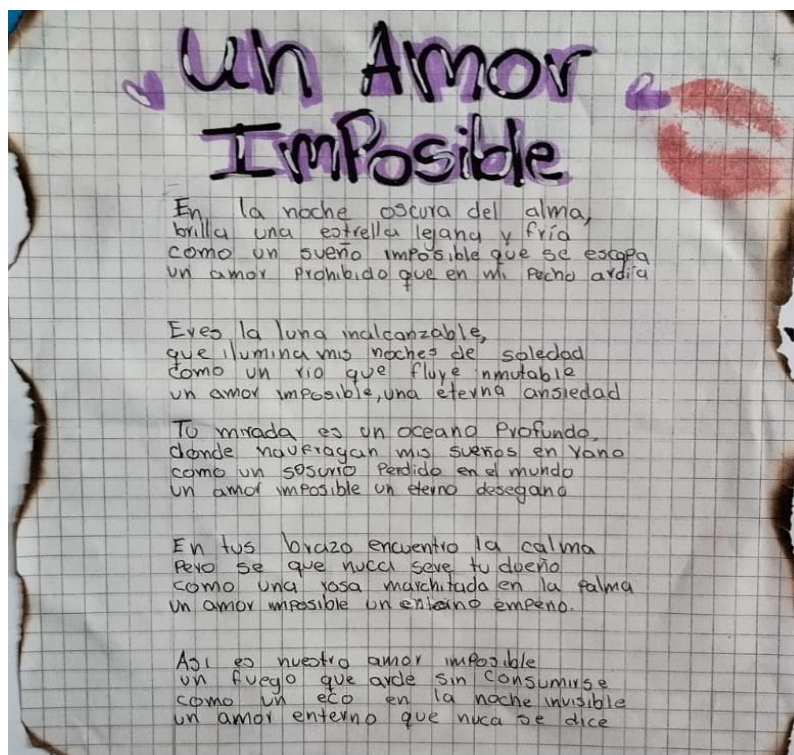 Un Amor
ImPosible
En la noche oscura del alma,
brilla una estrella lejana y fría
como un sueño imposible que se escapa
un amor prohibido que en mi pecho ardiía
Eres la luna inalcanzable,
que ilumina mis noches de soledad
como un rio que fluye inmutable
un amor imposible, una eterna ansiedad
Tu mirada es un oceano profundo,
donde naufragan mis sueños en vano
como un sosurro perdido en el mundo
un amor imposible un eterno desegano
En tus brazo encuentro la calma
Pero se que nucca sere tu dueño
como una rosa marchitada en la palma
un amor imposible un empeno.
Asi es nuestro amor imposible
un fuego que arde sin consumirse
como un eco en la noche invisible
un amor enterno que nuca se dice